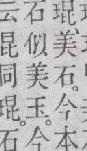 琨美石。今
石似美玉。今本
云昆同琨。石